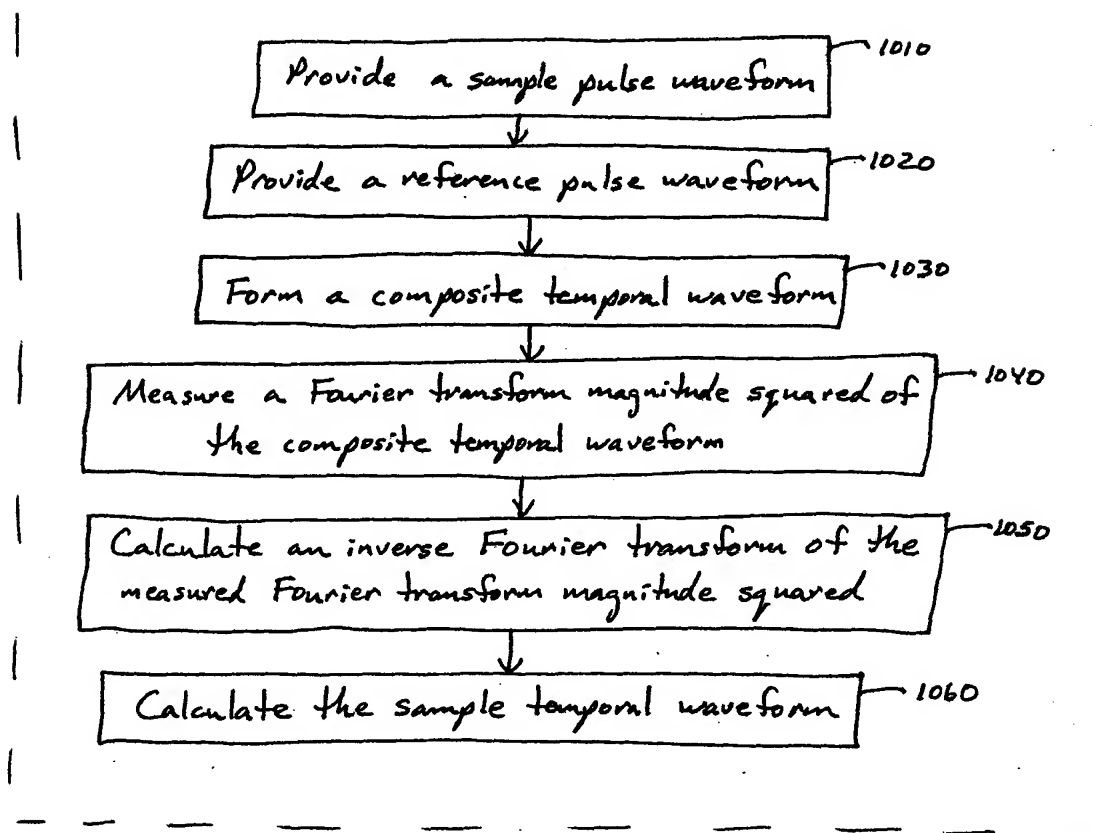 Provide a sample pulse waveform
1010
Provide a reference pulse waveform
1020
Form a composite temporal waveform
1030
Measure a Fourier transform magnitude squared of
the composite temporal waveform
1040
Calculate an inverse Fourier transform of the
measured Fourier transform magnitude squared
1050
Calculate the sample temporal waveform
1060